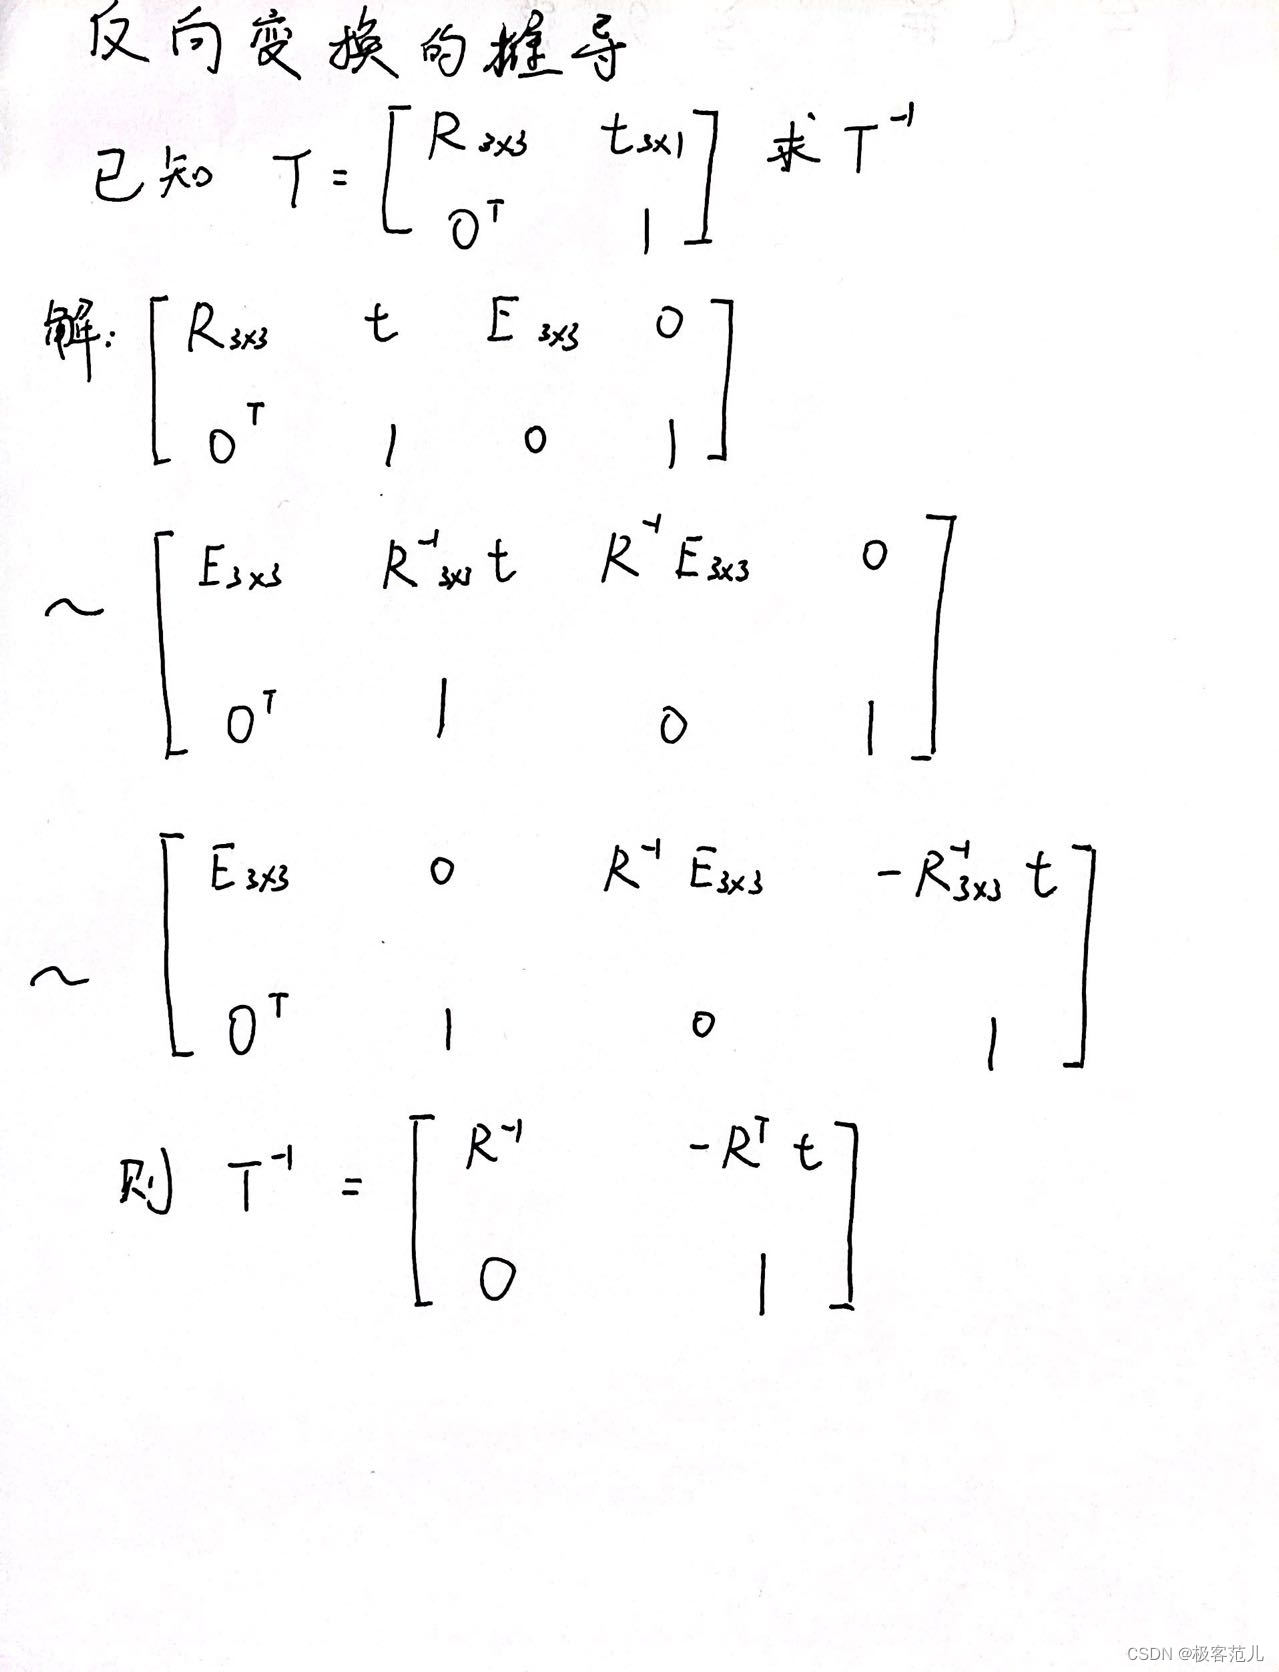 反向变换的推导
已知 T = [ R₃ₓ₃ t₃ₓ₁ ] 求 T⁻¹
0ᵀ 1
解: [ R₃ₓ₃ t E₃ₓ₃ 0 ]
0ᵀ 1 0 1
~ [ E₃ₓ₃ R⁻¹₃ₓ₃ t R⁻¹ E₃ₓ₃ 0 ]
0ᵀ 1 0 1
~ [ E₃ₓ₃ 0 R⁻¹ E₃ₓ₃ -R⁻¹₃ₓ₃ t ]
0ᵀ 1 0 1
则 T⁻¹ = [ R⁻¹ -Rᵀ t ]
0 1
CSDN @极客范儿